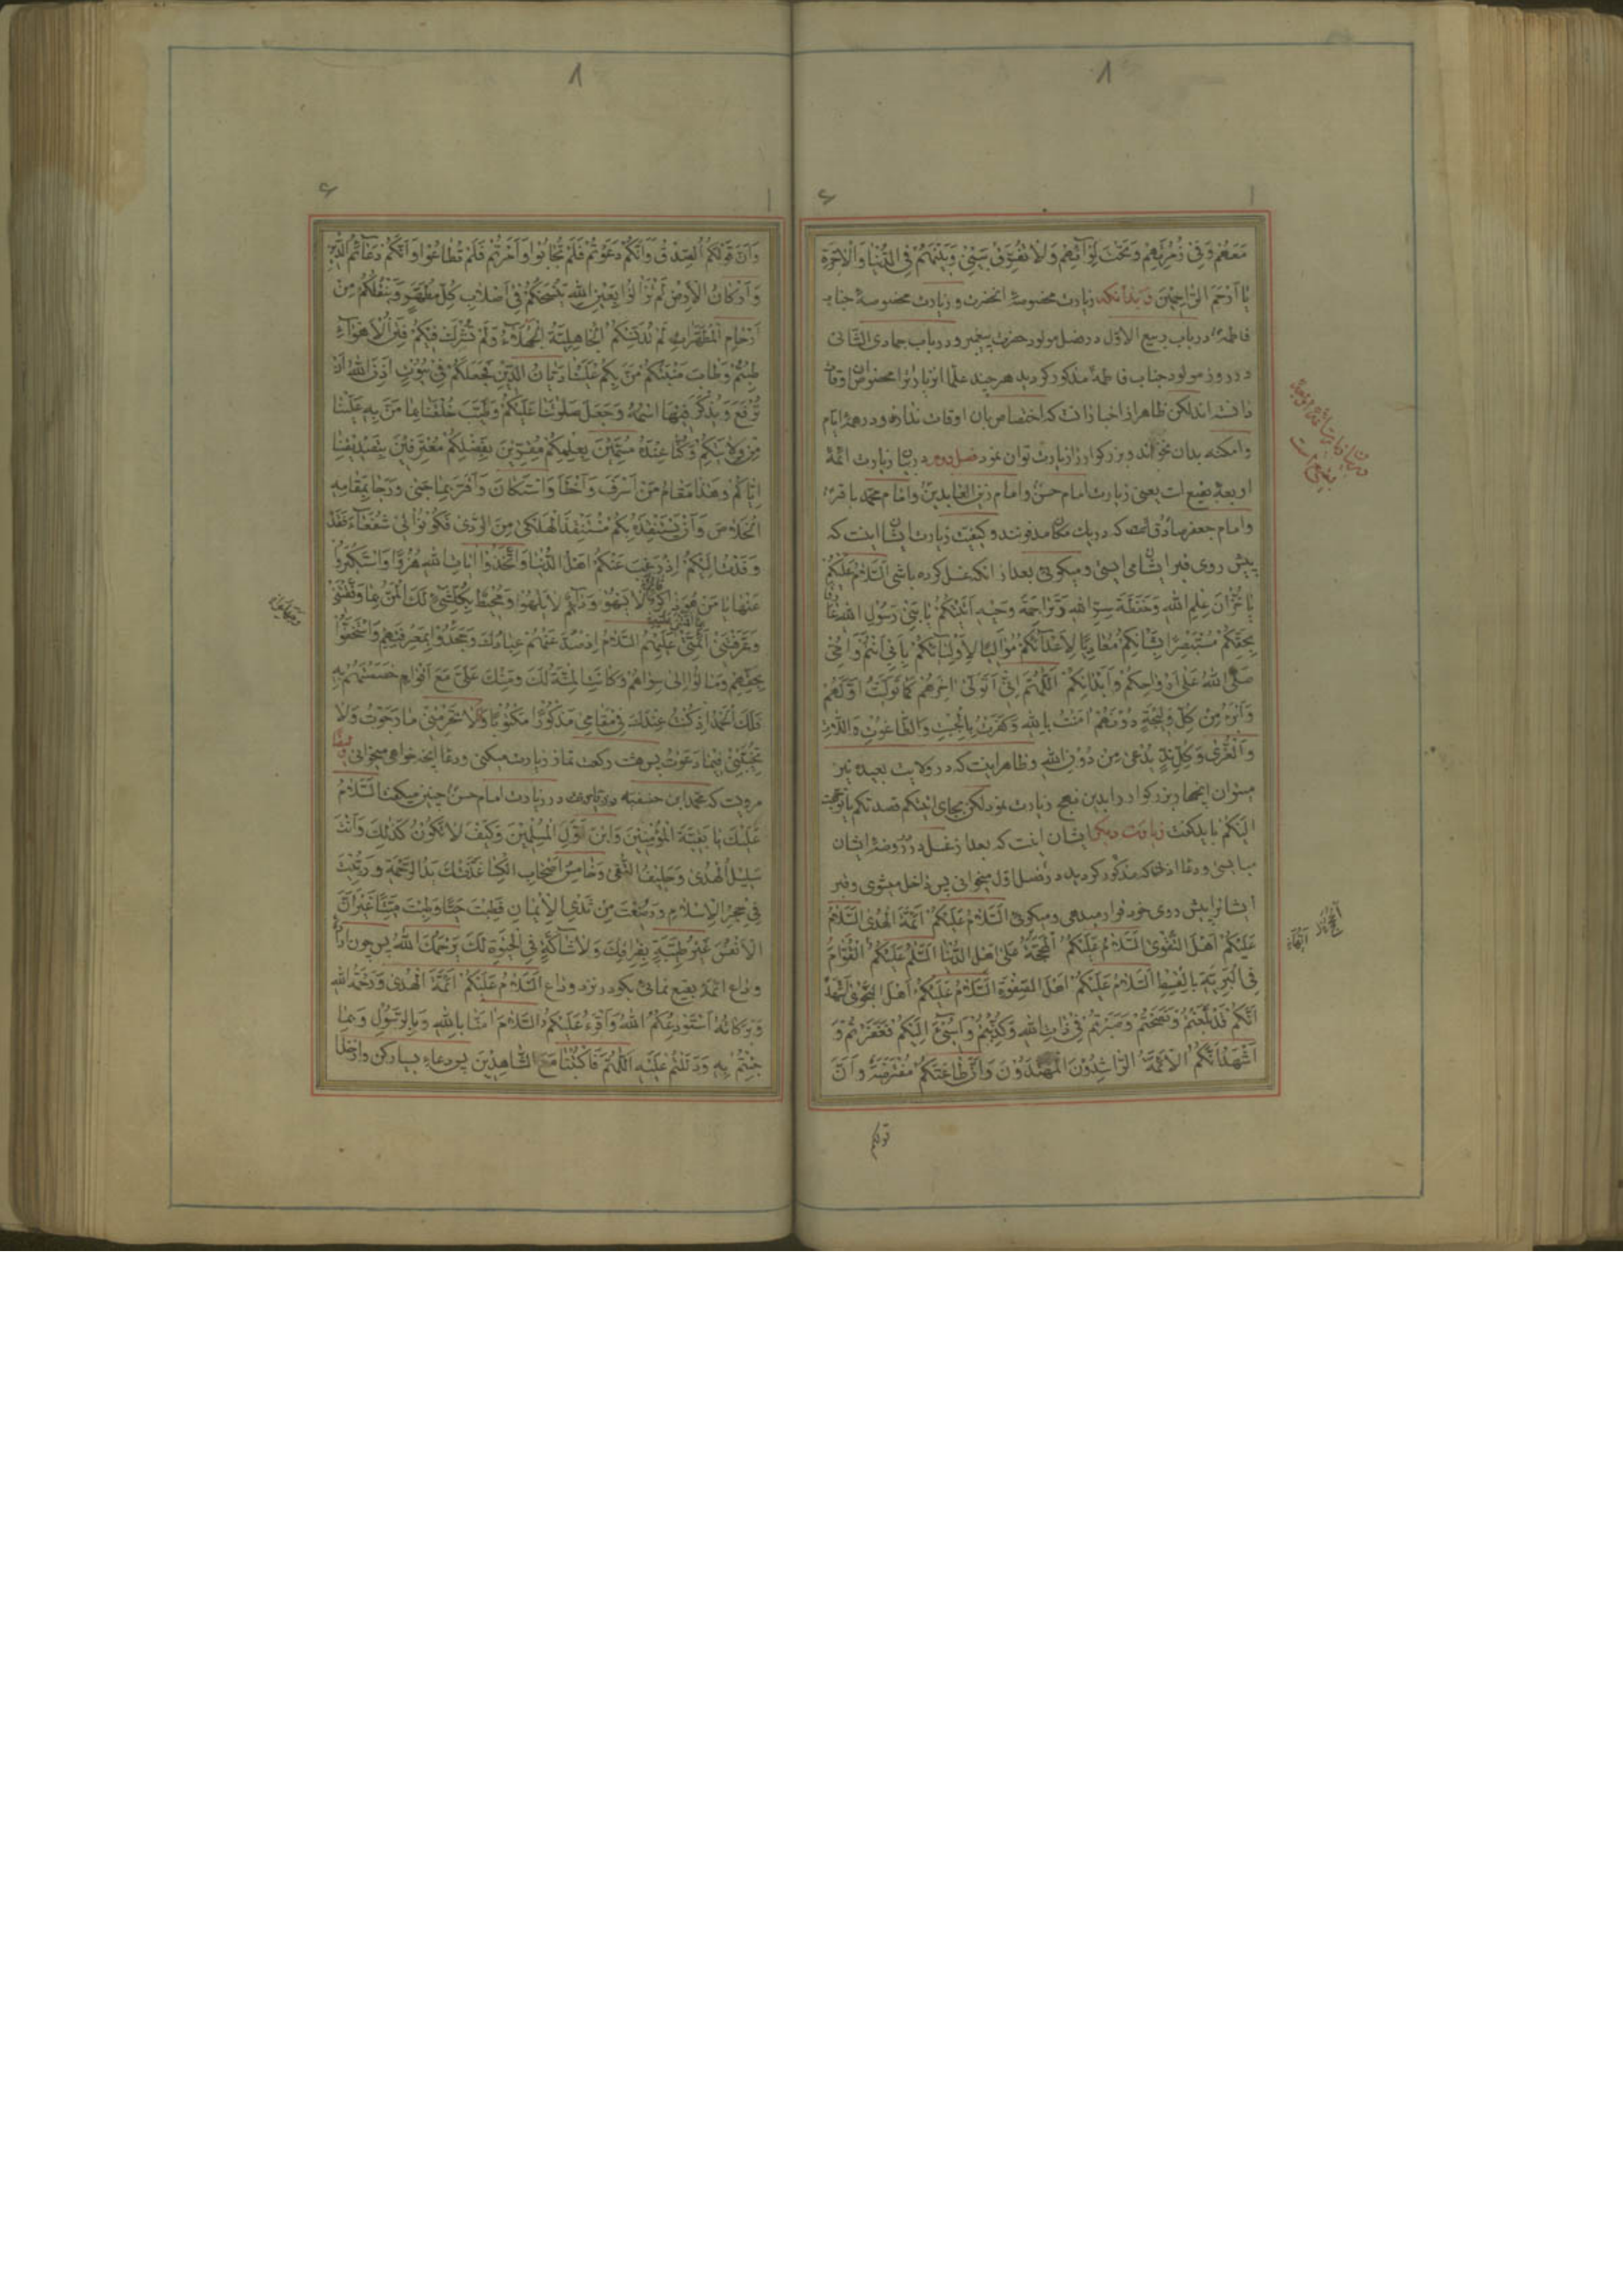 مَعَهُمْ وَفِي زُمْرَتِهِمْ وَتَحْتَ لِوَائِهِمْ وَلَا تُفَرِّقْ بَيْنِي وَبَيْنَهُمْ فِي الدُّنْيَا وَالْآخِرَةِ
يَا أَرْحَمَ الرَّاحِمِينَ وبدانکه زیارت مخصوصهٔ انحضرت و زیارت مخصوصهٔ جناب
فاطمه در باب ربیع الاوّل در فصل مولود حضرت پیغمبر و در باب جمادی الثانی
در روز مولود جناب فاطمه مذکور کردید هر چند علما این زیارت را مخصوص اوقات
دانسته اند لکن ظاهر از اخبار انست که اختصاص بان اوقات ندارد و در همهٔ ایام
وامکنه بدان نحو اند و بزرکوار را زیارت توان نمود فصل دوم در بیان زیارت ائمهٔ
اربعهٔ بقیع است یعنی زیارت امام حسن وامام زین العابدین وامام محمد باقر
وامام جعفر صادق که در یك مکان مدفونند و کیفیت زیارت ایشان اینست که
پیش روی قبر ایشان می ایستی و میکوئی بعد از انکه غسل کرده باشی السَّلَامُ عَلَيْكُمْ
يَا خُزَّانَ عِلْمِ اللهِ وَحَفَظَةَ سِرِّ اللهِ وَتَرَاجِمَةَ وَحْيِهِ أَتَيْتُكُمْ يَا بَنِي رَسُولِ اللهِ عَارِفًا
بِحَقِّكُمْ مُسْتَبْصِرًا بِشَأْنِكُمْ مُعَادِيًا لِأَعْدَائِكُمْ مُوَالِيًا لِأَوْلِيَائِكُمْ بِأَبِي أَنْتُمْ وَأُمِّي
صَلَّى اللهُ عَلَى أَرْوَاحِكُمْ وَأَبْدَانِكُمْ اَللّٰهُمَّ إِنِّي أَتَوَلَّى آخِرَهُمْ كَمَا تَوَلَّيْتُ أَوَّلَهُمْ
وَأَبْرَءُ مِنْ كُلِّ وَلِيجَةٍ دُونَهُمْ آمَنْتُ بِاللهِ وَكَفَرْتُ بِالْجِبْتِ وَالطَّاغُوتِ وَاللَّاتِ
وَالْعُزَّى وَكُلِّ نِدٍّ يُدْعَى مِنْ دُونِ اللهِ وظاهر اینست که در ولایت بعیده نیز
میتوان انها بزرکوار را بدین نهج زیارت نمود لکن بجای اتیتکم قصدتکم
الیکم باید کفت زیارت دیکر ایشان انست که بعد از غسل در روضهٔ ایشان
میایستی و دعا اذنی که مذکور کردید در فصل اول میخوانی پس داخل میشوی و قبر
ایشانرا پیش روی خود قرار میدهی و میکوئی السَّلَامُ عَلَيْكُمْ أَئِمَّةَ الْهُدَى السَّلَامُ
عَلَيْكُمْ أَهْلَ التَّقْوَى السَّلَامُ عَلَيْكُمْ الْحُجَّةُ عَلَى أَهْلِ الدُّنْيَا السَّلَامُ عَلَيْكُمْ الْقُوَّامُ
فِي الْبَرِيَّةِ بِالْقِسْطِ السَّلَامُ عَلَيْكُمْ أَهْلَ الصَّفْوَةِ السَّلَامُ عَلَيْكُمْ أَهْلَ النَّجْوَى أَشْهَدُ
أَنَّكُمْ قَدْ بَلَّغْتُمْ وَنَصَحْتُمْ وَصَبَرْتُمْ فِي ذَاتِ اللهِ وَكُذِّبْتُمْ وَأُسِيءَ إِلَيْكُمْ فَغَفَرْتُمْ وَ
أَشْهَدُ أَنَّكُمُ الْأَئِمَّةُ الرَّاشِدُونَ الْمُهْتَدُونَ وَأَنَّ طَاعَتَكُمْ مُفْتَرَضَةٌ وَأَنَّ
قولکم
وَأَنَّ قَوْلَكُمُ الصِّدْقُ وَأَنَّكُمْ دَعَوْتُمْ فَلَمْ تُجَابُوا وَأَمَرْتُمْ فَلَمْ تُطَاعُوا وَأَنَّكُمْ دَعَائِمُ الدِّينِ
وَأَرْكَانُ الْأَرْضِ لَمْ تَزَالُوا بِعَيْنِ اللهِ يَنْسَخُكُمْ فِي أَصْلَابِ كُلِّ مُطَهَّرٍ وَيَنْقُلُكُمْ مِنْ
أَرْحَامِ الْمُطَهَّرَاتِ لَمْ تُدَنِّسْكُمُ الْجَاهِلِيَّةُ الْجُهَلَاءُ وَلَمْ تُشْرَكْ فِيكُمْ فِتَنُ الْأَهْوَاءِ
طِبْتُمْ وَطَابَ مَنْبَتُكُمْ مَنَّ بِكُمْ عَلَيْنَا دَيَّانُ الدِّينِ فَجَعَلَكُمْ فِي بُيُوتٍ أَذِنَ اللهُ أَنْ
تُرْفَعَ وَيُذْكَرَ فِيهَا اسْمُهُ وَجَعَلَ صَلَوٰتَنَا عَلَيْكُمْ وَطَيَّبَ خُلْقَنَا بِمَا مَنَّ بِهِ عَلَيْنَا
مِنْ وِلَايَتِكُمْ وَكُنَّا عِنْدَهُ مُسَمِّينَ بِعِلْمِكُمْ مُقِرِّينَ بِفَضْلِكُمْ مُعْتَرِفِينَ بِتَصْدِيقِنَا
إِيَّاكُمْ وَهٰذَا مَقَامُ مَنْ أَسْرَفَ وَأَخْطَأَ وَاسْتَكَانَ وَأَقَرَّ بِمَا جَنَى وَرَجَا بِمَقَامِهِ
الْخَلَاصَ وَأَنْ يَسْتَنْقِذَهُ بِكُمْ مُسْتَنْقِذُ الْهَلْكَى مِنَ الرَّدَى فَكُونُوا لِي شُفَعَاءَ فَقَدْ
وَفَدْتُ إِلَيْكُمْ إِذْ رَغِبَ عَنْكُمْ أَهْلُ الدُّنْيَا وَاتَّخَذُوا آيَاتِ اللهِ هُزُوًا وَاسْتَكْبَرُوا
عَنْهَا يَا مَنْ هُوَ ذَاكِرٌ لَا يَسْهُو وَدَائِمٌ لَا يَلْهُو وَمُحِيطٌ بِكُلِّ شَيْءٍ لَكَ الْمَنُّ بِمَا وَفَّقْتَنِي
وَعَرَّفْتَنِي أَئِمَّتِي عَلَيْهِمُ السَّلَامُ إِذْ صَدَّ عَنْهُمْ عِبَادُكَ وَجَحَدُوا بِمَعْرِفَتِهِمْ وَاسْتَخَفُّوا
بِحَقِّهِمْ وَمَالُوا إِلَى سِوَاهُمْ وَكَانَتِ الْمِنَّةُ لَكَ وَمِنْكَ عَلَيَّ مَعَ أَقْوَامٍ خَصَصْتَهُمْ بِهِ
فَلَكَ الْحَمْدُ إِذْ كُنْتُ عِنْدَكَ فِي مَقَامِي مَذْكُورًا مَكْتُوبًا وَلَا تَحْرِمْنِي مَا رَجَوْتُ وَلَا
تُخَيِّبْنِي فِيمَا دَعَوْتُ پس هشت رکعت نماز زیارت میکنی و دعا انچه خواهی میخوانی
مرویست که محمد ابن حنفیه در زیارت امام حسن چنین میکفت السَّلَامُ
عَلَيْكَ يَا بَقِيَّةَ الْمُؤْمِنِينَ وَابْنَ أَوَّلِ الْمُسْلِمِينَ وَكَيْفَ لَا تَكُونُ كَذٰلِكَ وَأَنْتَ
سَلِيلُ الْهُدَى وَحَلِيفُ التُّقَى وَخَامِسُ أَصْحَابِ الْكِسَا غَذَّتْكَ يَدُ الرَّحْمَةِ وَرُبِّيتَ
فِي حِجْرِ الْإِسْلَامِ وَرَضَعْتَ مِنْ ثَدْيِ الْإِيمَانِ فَطِبْتَ حَيًّا وَطِبْتَ مَيِّتًا غَيْرَ أَنَّ
الْأَنْفُسَ غَيْرُ طَيِّبَةٍ بِفِرَاقِكَ وَلَا شَاكَّةٍ فِي الْحَيٰوةِ لَكَ يَرْحَمُكَ اللهُ پس چون ارادهٔ
وداع ائمهٔ بقیع نمائی بکو در نزد وداع السَّلَامُ عَلَيْكُمْ أَئِمَّةَ الْهُدَى وَرَحْمَةُ اللهِ
وَبَرَكَاتُهُ أَسْتَوْدِعُكُمُ اللهَ وَأَقْرَءُ عَلَيْكُمُ السَّلَامَ آمَنَّا بِاللهِ وَبِالرَّسُولِ وَبِمَا
جِئْتُمْ بِهِ وَدَلَلْتُمْ عَلَيْهِ اَللّٰهُمَّ فَاكْتُبْنَا مَعَ الشَّاهِدِينَ پس دعاء بسیار کن و از خدا